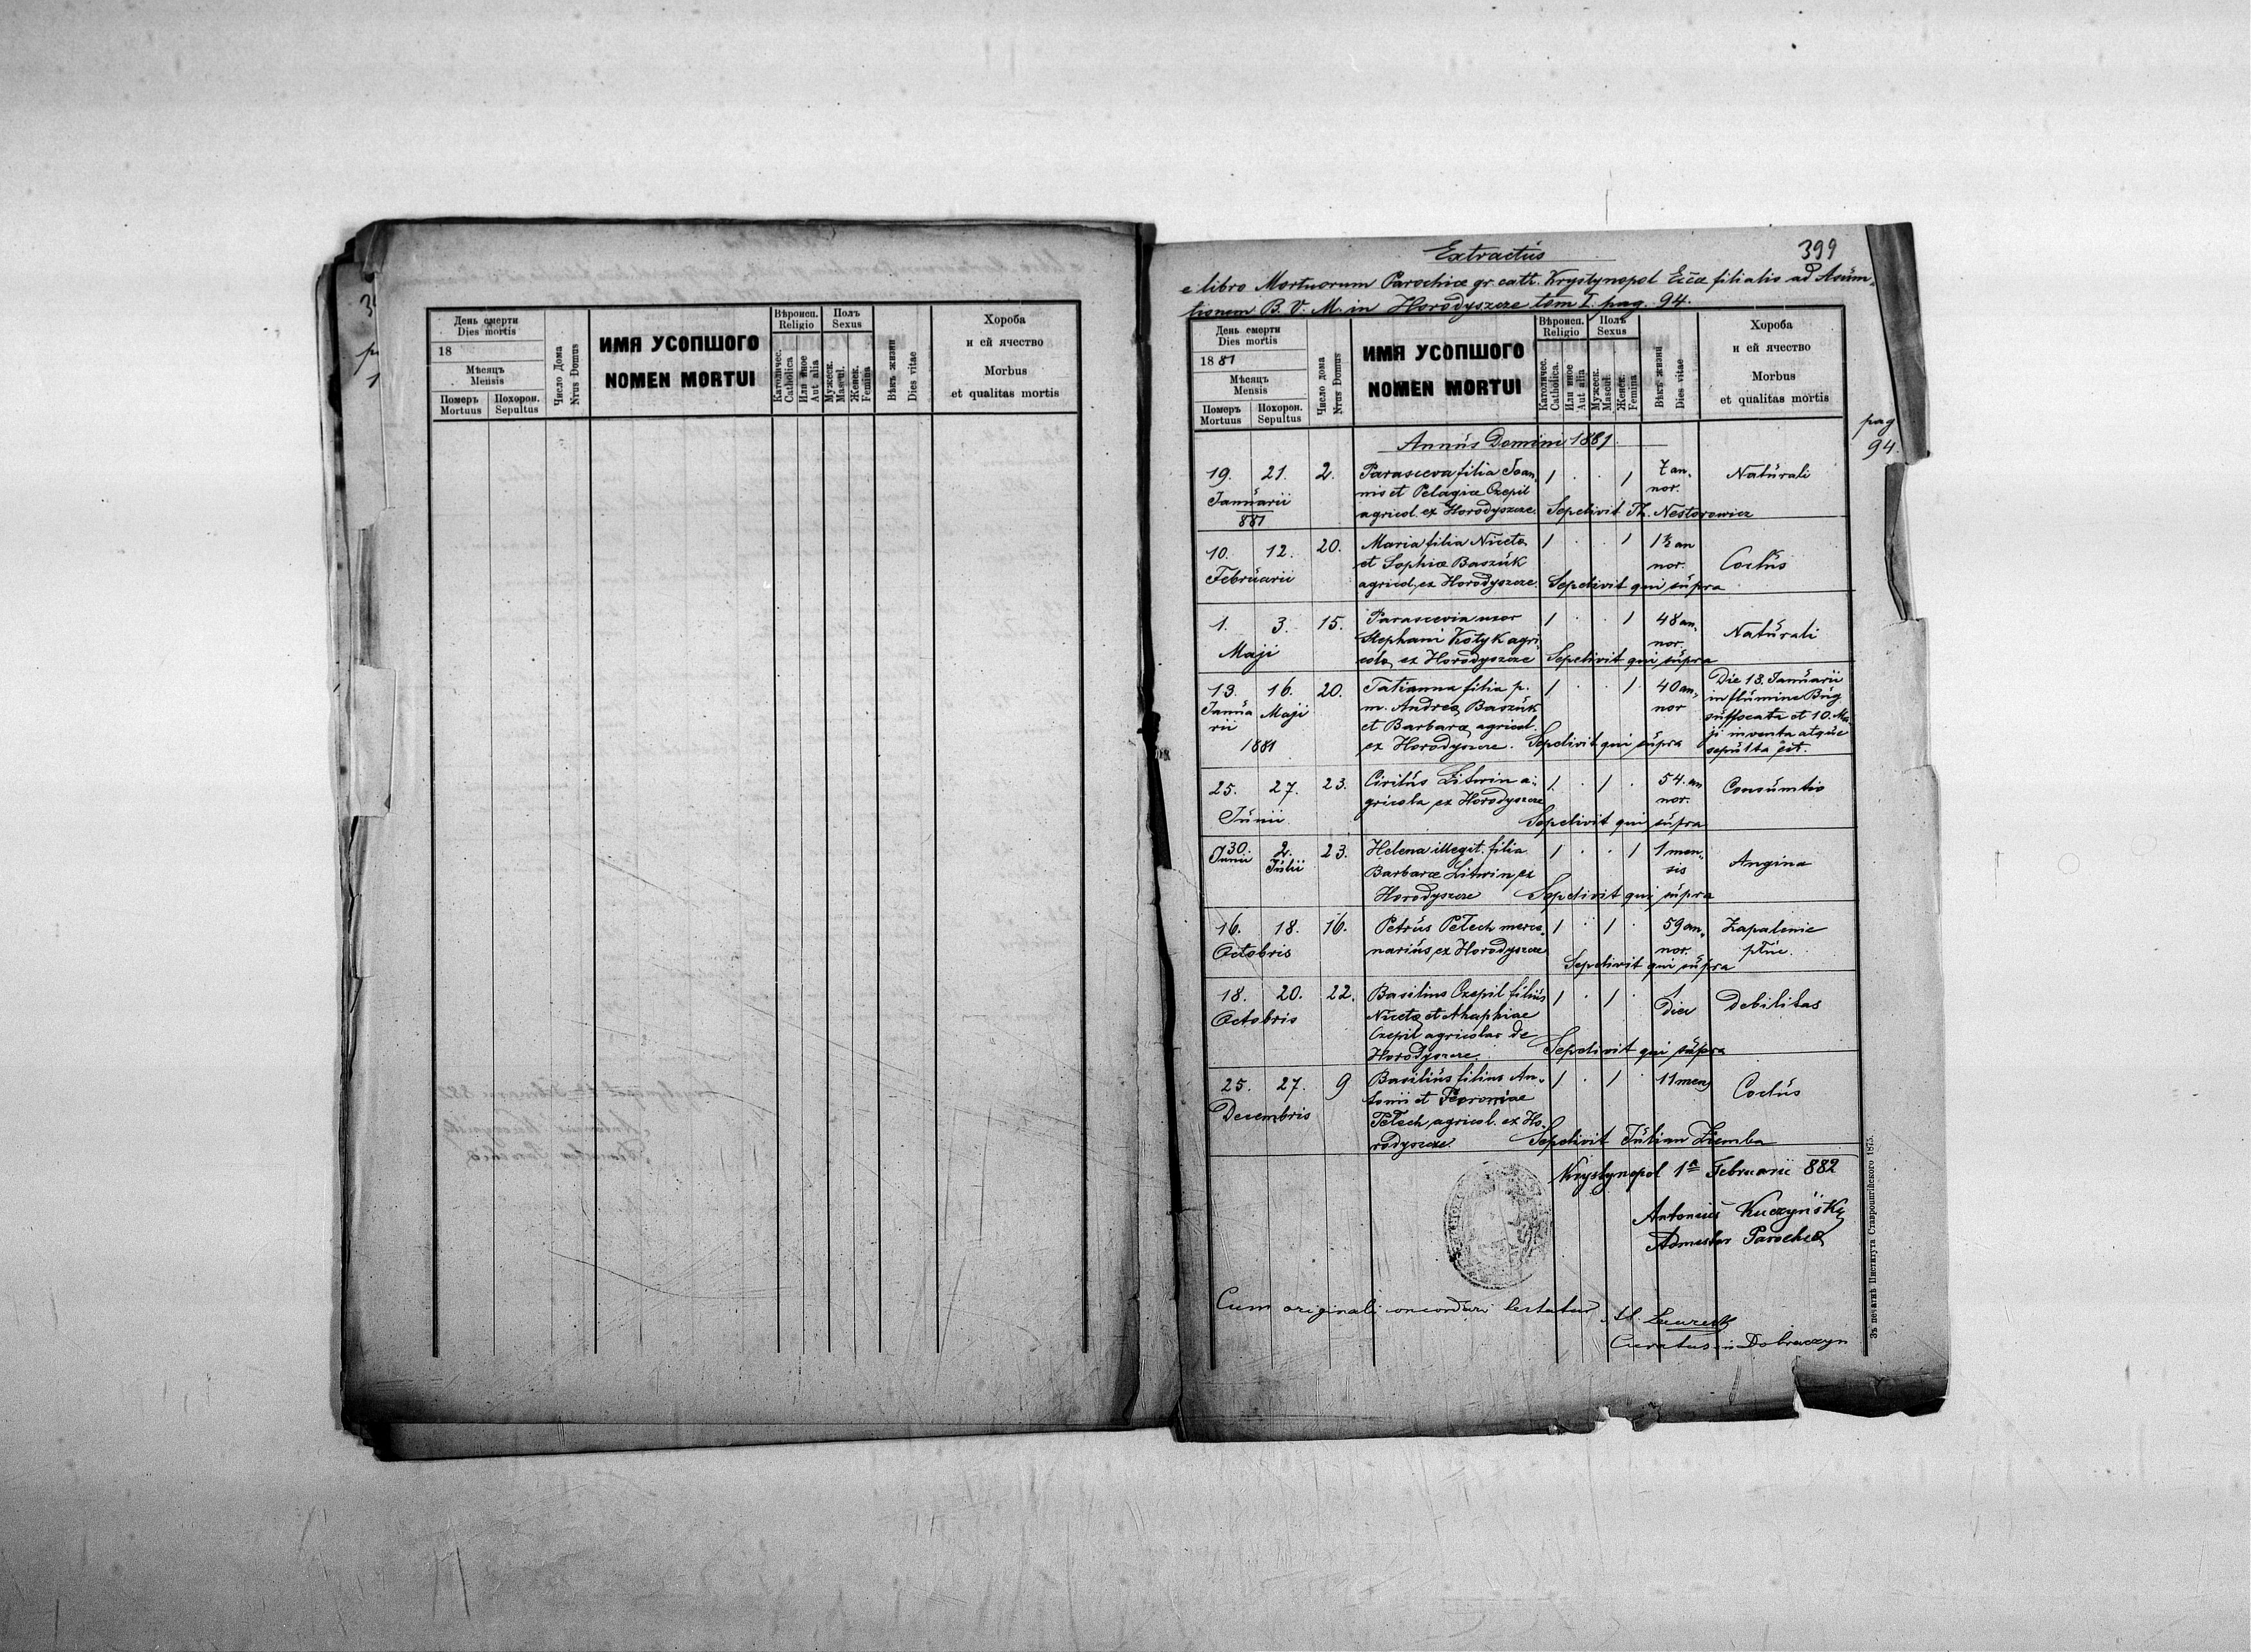 День смерти
Dies mortis
18
Мѣсяць
Mensis
Померъ
Mortuus
Похорон.
Sepultus
Число Дома
Nrus Domus
ИМЯ УСОПШОГО
NOMEN MORTUI
Вѣроисп.
Religio
Католичес.
Catholica
Или иное
Aut alia
Полъ
Sexus
Мужеск.
Mascul.
Женск.
Femina
Вѣкъ жизни
Dies vitae
Хороба
и ей ячество
Morbus
et qualitas mortis
Extractus
399
e libro Mortuorum Parochiæ gr. cath. Krystynopol Eccæ filialis ad Asum-
tionem B. V. M. in Horodyszcze tom I. pag. 94.
День смерти
Dies mortis
1881
Мѣсяць
Mensis
Померъ
Mortuus
Похорон.
Sepultus
Число дома
Nrus Domus
ИМЯ УСОПШОГО
NOMEN MORTUI
Вѣроисп.
Religio
Католичес.
Catholica.
Или иное
Aut alia
Полъ
Sexus
Мужеск.
Mascul.
Женск.
Femina
Вѣкъ жизни
Dies vitae
Хороба
и ей ячество
Morbus
et qualitas mortis
pag
94.
Annus Domini 1881
19. 21. 2. Parasceva filia Joan- 1 . . 1 7 an- Naturali
nis et Pelagiæ Czepil nor.
Januarii agricol. ex Horodyszcze. Sepelivit Th. Nestorowicz
881
10. 12. 20. Maria filia Nicetæ 1 . . 1 1½ an
et Sophiæ Baszuk nor. Coctus
Februarii agricol. ex Horodyszcze. Sepelivit qui supra
1. 3. 15. Parascevia uxor 1 . . 1 48 an- Naturali
Stephani Kotyk agri- nor.
Maji cola ex Horodyszcze Sepelivit qui supra
13. 16. 20. Tatianna filia p. 1 . . 1. 40 an- Die 13. Januarii
Janua Maji m. Andreæ Baszuk nor in flumine Bug
rii et Barbaræ agricol. suffocata et 10. Ma-
1881 ex Horodyszcze. Sepelivit qui supra ji inventa atque
sepulta est.
25. 27. 23. Cirilus Litwin a- 1. . 1 . 54. an Consumtio
gricola ex Horodyszcze nor.
Junii. Sepelivit qui supra
30. 2. 23. Helena illegit. filia 1 . . 1 1 men- Angina
Junii Julii Barbaræ Litwin ex sis
Horodyszcze Sepelivit qui supra
16. 18. 16. Petrus Pełech merce- 1 . 1 . 59 an- Zapalenie
Octobris narius ex Horodyszcze nor. płuc.
Sepelivit qui supra
18. 20. 22. Basilius Czepil filius 1 . 1 . 1 Debilitas
Octobris Nicetæ et Ahaphiae Diei
Czepil agricolar de
Horodyszcze. Sepelivit qui supra
25. 27. 9 Basilius filius An- 1 . 1 . 11 mens Coctus
Decembris tonii et Fevroniae
Pełech agricol. ex Ho-
rodyszcze. Sepelivit Julian Ziemba
Krystynopol 1ª Februarii 882
Antonius Kuczyński
Admstor Parochiæ
Cum originali concordari testatur
Curatus in Dobraczyn
Зъ печатнѣ Института Ставропигійского 1875.